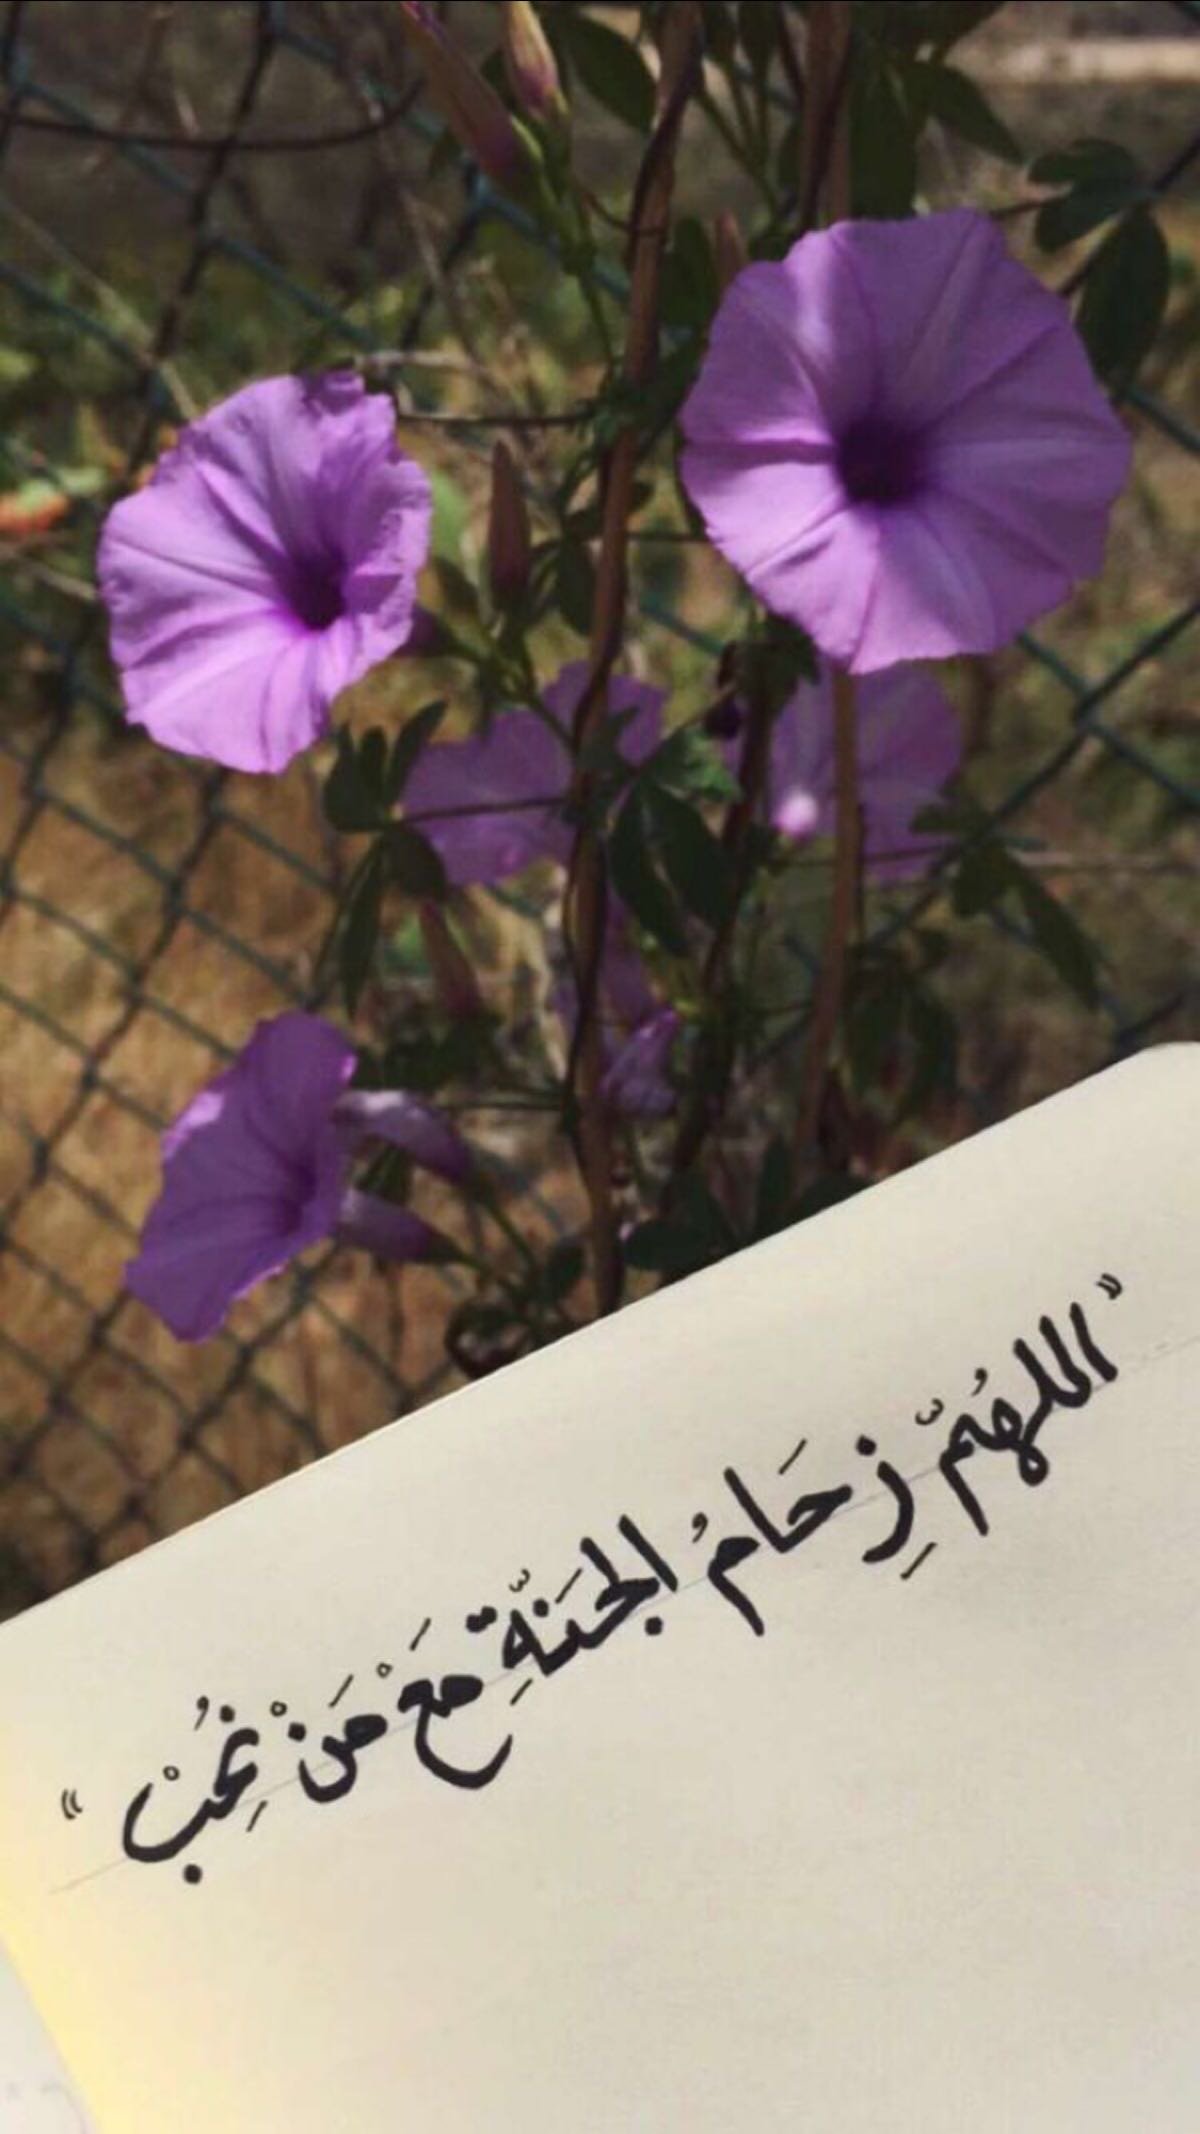 "اللهُمّ زِحَامُ الجَنَّةِ مَعَْ مَنْ نُحِبْ"